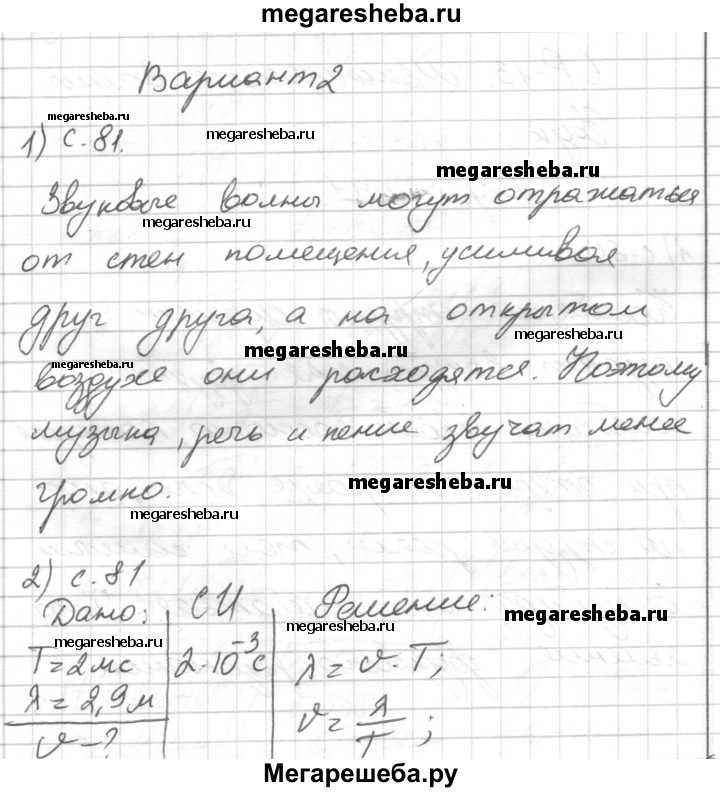 megaresheba.ru
Вариант 2
megaresheba.ru
1) с. 81.
megaresheba.ru
megaresheba.ru
Звуковые волны могут отражаться
megaresheba.ru
от стен помещения, усиливая
друг друга, а на открытом
megaresheba.ru
megaresheba.ru
megaresheba.ru
воздухе они расходятся. Поэтому
музыка, речь и пение звучат менее
громко.
megaresheba.ru
megaresheba.ru
2) с. 81
Дано: СИ Решение:
megaresheba.ru
megaresheba.ru
megaresheba.ru
T = 2мс 2·10⁻³с λ = υ·T;
λ = 2,9м
υ = λ/T;
υ - ?
Мегарешеба.ру